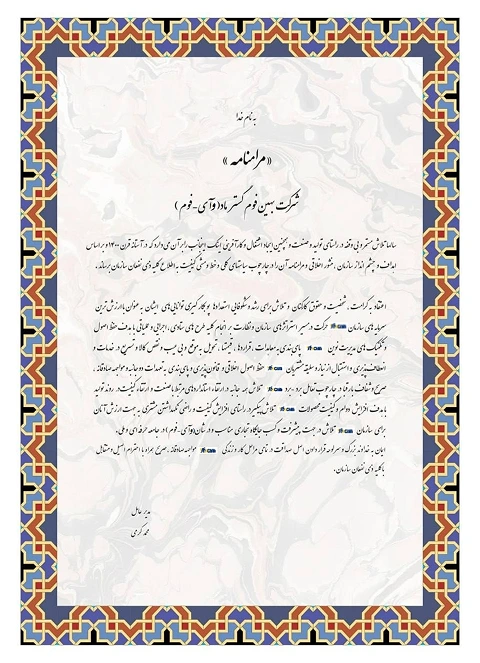 به نام خدا
« مرامنامه »
شرکت بهین فوم گستر ماد(وآی-فوم )
سالها تلاش مستمر و بی وقفه در راستای تولید و صنعت و همچنین ایجاد اشتغال و کارآفرینی اینک اینجانب را بر آن می دارد که در آستانه قرن ۱۴۰۰ و بر اساس
اهداف و چشم انداز سازمان , منشور اخلاقی و مرامنامه آن را در چارچوب سیاستهای کلی و خط و مشی کیفیت به اطلاع کلیه ذی نفعان سازمان برساند .
اعتقاد به کرامت , شخصیت و حقوق کارکنان و تلاش برای رشد و شکوفایی استعدادها و بکارگیری توانایی های ایشان به عنوان با ارزش ترین
سرمایه های سازمان حرکت در مسیر استراتژهای سازمان و نظارت بر انجام کلیه طرح های ستادی , اجرایی و عملیاتی با هدف حفظ اصول
و تکنیک های مدیریت نوین پای بندی به معاهدات , قراردادها , قیمتها , تحویل به موقع و بی عیب و نقص کالا و تسریع در خدمات و
انعطاف پذیری و استقبال از نیاز و سلیقه مشتریان حفظ اصول اخلاقی و قانون پذیری و پای بندی به تعهدات دوجانبه و مواجهه صادقانه ,
صریح و شفاف با رقبا در چارچوب تعامل برد - برد تلاش همه جانبه در ارتقاء استانداردهای مرتبط با صنعت و ارتقاء کیفیت در روند تولید
با هدف افزایش دوام و کیفیت محصولات تلاش پیگیر در راستای افزایش کیفیت و راضی نگهداشتن مشتری به جهت ارزش آنان
برای سازمان تلاش در جهت پیشرفت و کسب جایگاه تجاری مناسب و در شان (وآی-فوم) در جامعه حرفه ای و ملی.
ایمان به خداوند بزرگ و سرلوحه قرار دادن اصل صداقت در تمامی مراحل کار و زندگی مواجهه صادقانه , صریح همراه با احترام اصیل و متقابل
با کلیه ذی نفعان سازمان.
مدیر عامل
محمد کرمی